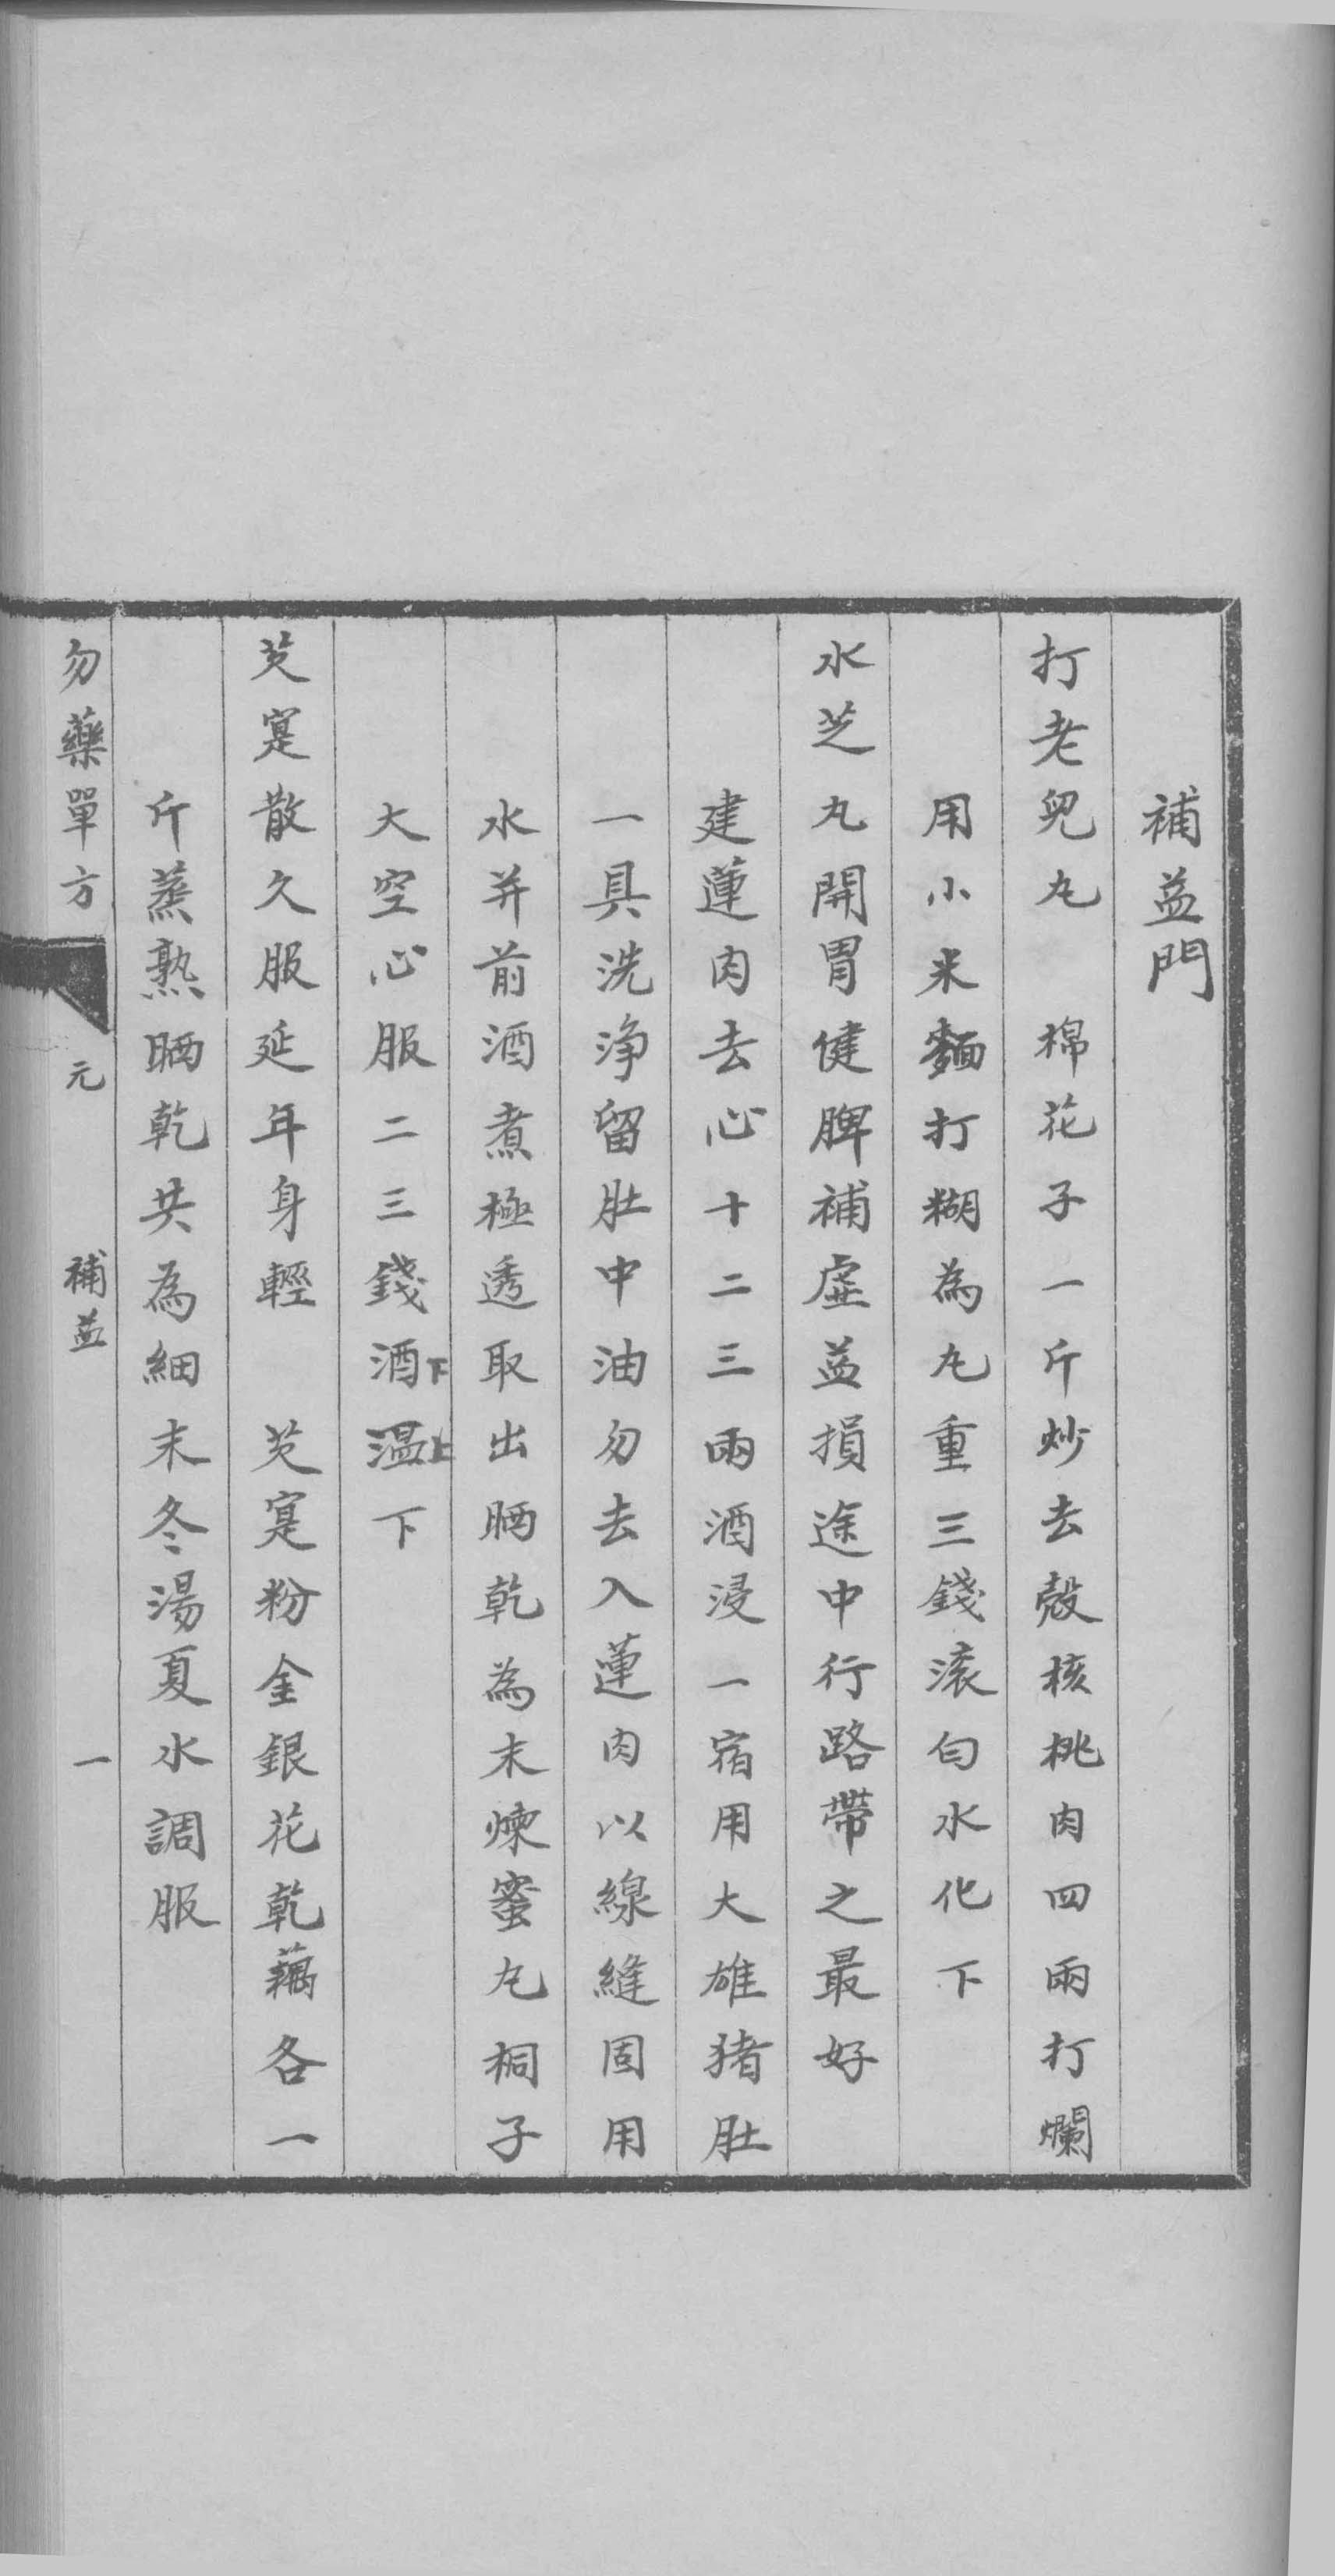 補益門
打老兒丸　棉花子一斤炒去殼核桃肉四兩打爛
用小米麵打糊為丸重三錢滚勻水化下
水芝丸開胃健脾補虛益損途中行路帶之最好
建蓮肉去心十二三兩酒浸一宿用大雄猪肚
一具洗淨留肚中油勿去入蓮肉以線縫固用
水并前酒煮極透取出晒乾為末煉蜜丸桐子
大空心服二三錢酒下溫上下
芡寔散久服延年身輕　芡寔粉金銀花乾藕各一
斤蒸熟晒乾共為細末冬湯夏水調服
勿藥單方　元　補益　一